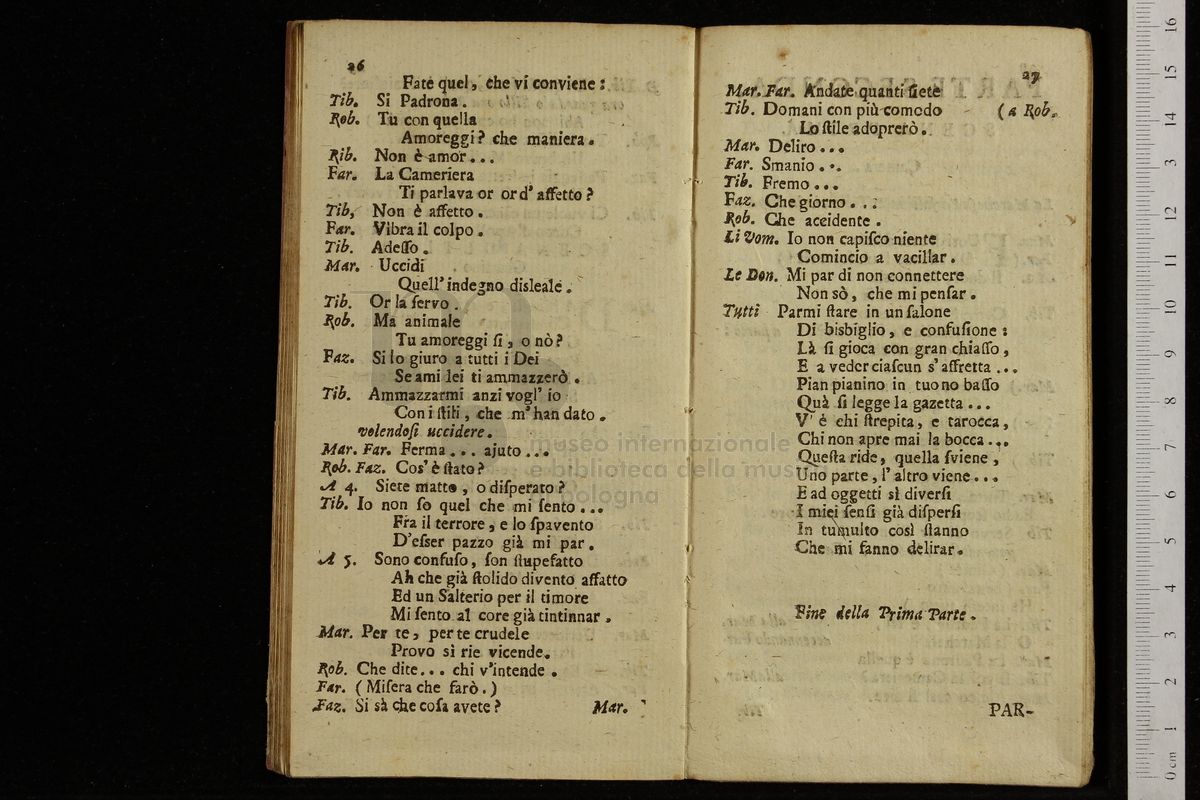 26
Fate quel, che vi conviene:
Tib. Si Padrona.
Rob. Tu con quella
Amoreggi? che maniera.
Rib. Non è amor...
Far. La Cameriera
Ti parlava or or d' affetto?
Tib, Non è affetto.
Far. Vibra il colpo.
Tib. Adeſſo.
Mar. Uccidi
Quell' indegno disleale.
Tib. Or la ſervo.
Rob. Ma animale
Tu amoreggi ſi, o nò?
Faz. Si lo giuro a tutti i Dei
Se ami lei ti ammazzerò.
Tib. Ammazzarmi anzi vogl' io
Con i ſtili, che m' han dato.
volendoſi uccidere.
Mar. Far. Ferma... ajuto...
Rob. Faz. Cos' è ſtato?
A 4. Siete matto, o diſperato?
Tib. Io non ſo quel che mi ſento...
Fra il terrore, e lo ſpavento
D'eſser pazzo già mi par.
A 5. Sono confuſo, ſon ſtupefatto
Ah che già ſtolido divento affatto
Ed un Salterio per il timore
Mi ſento al core già tintinnar.
Mar. Per te, per te crudele
Provo sì rie vicende.
Rob. Che dite... chi v'intende.
Far. (Miſera che farò.)
Faz. Si sà che coſa avete?
Mar.
27
Mar. Far. Andate quanti ſiete
Tib. Domani con più comodo (a Rob.
Lo ſtile adoprerò.
Mar. Deliro...
Far. Smanio...
Tib. Fremo...
Faz. Che giorno...
Rob. Che accidente.
Li Vom. Io non capiſco niente
Comincio a vacillar.
Le Don. Mi par di non connettere
Non sò, che mi penſar.
Tutti Parmi ſtare in un ſalone
Di bisbiglio, e confuſione:
Là ſi gioca con gran chiaſſo,
E a veder ciaſcun s' affretta...
Pian pianino in tuono baſſo
Quà ſi legge la gazetta...
V' è chi ſtrepita, e tarocca,
Chi non apre mai la bocca...
Queſta ride, quella ſviene,
Uno parte, l' altro viene...
E ad oggetti sì diverſi
I miei ſenſi già diſperſi
In tumulto così ſtanno
Che mi fanno delirar.
Fine della Prima Parte.
PAR-
museo internazionale
e biblioteca della musica
bologna